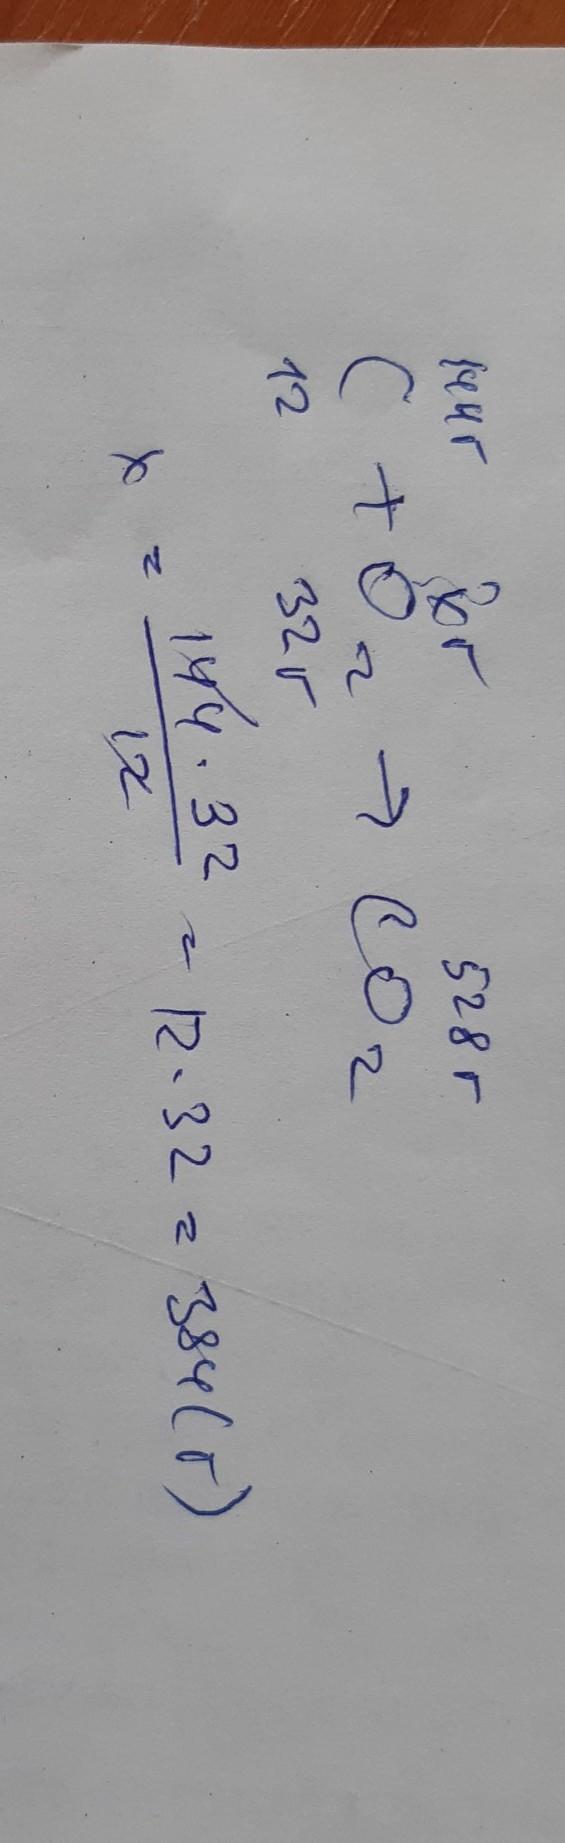 144г xг 528г
C + O2 → CO2
12 32г
x = 144 · 32 / 12 = 12 · 32 = 384 (г)